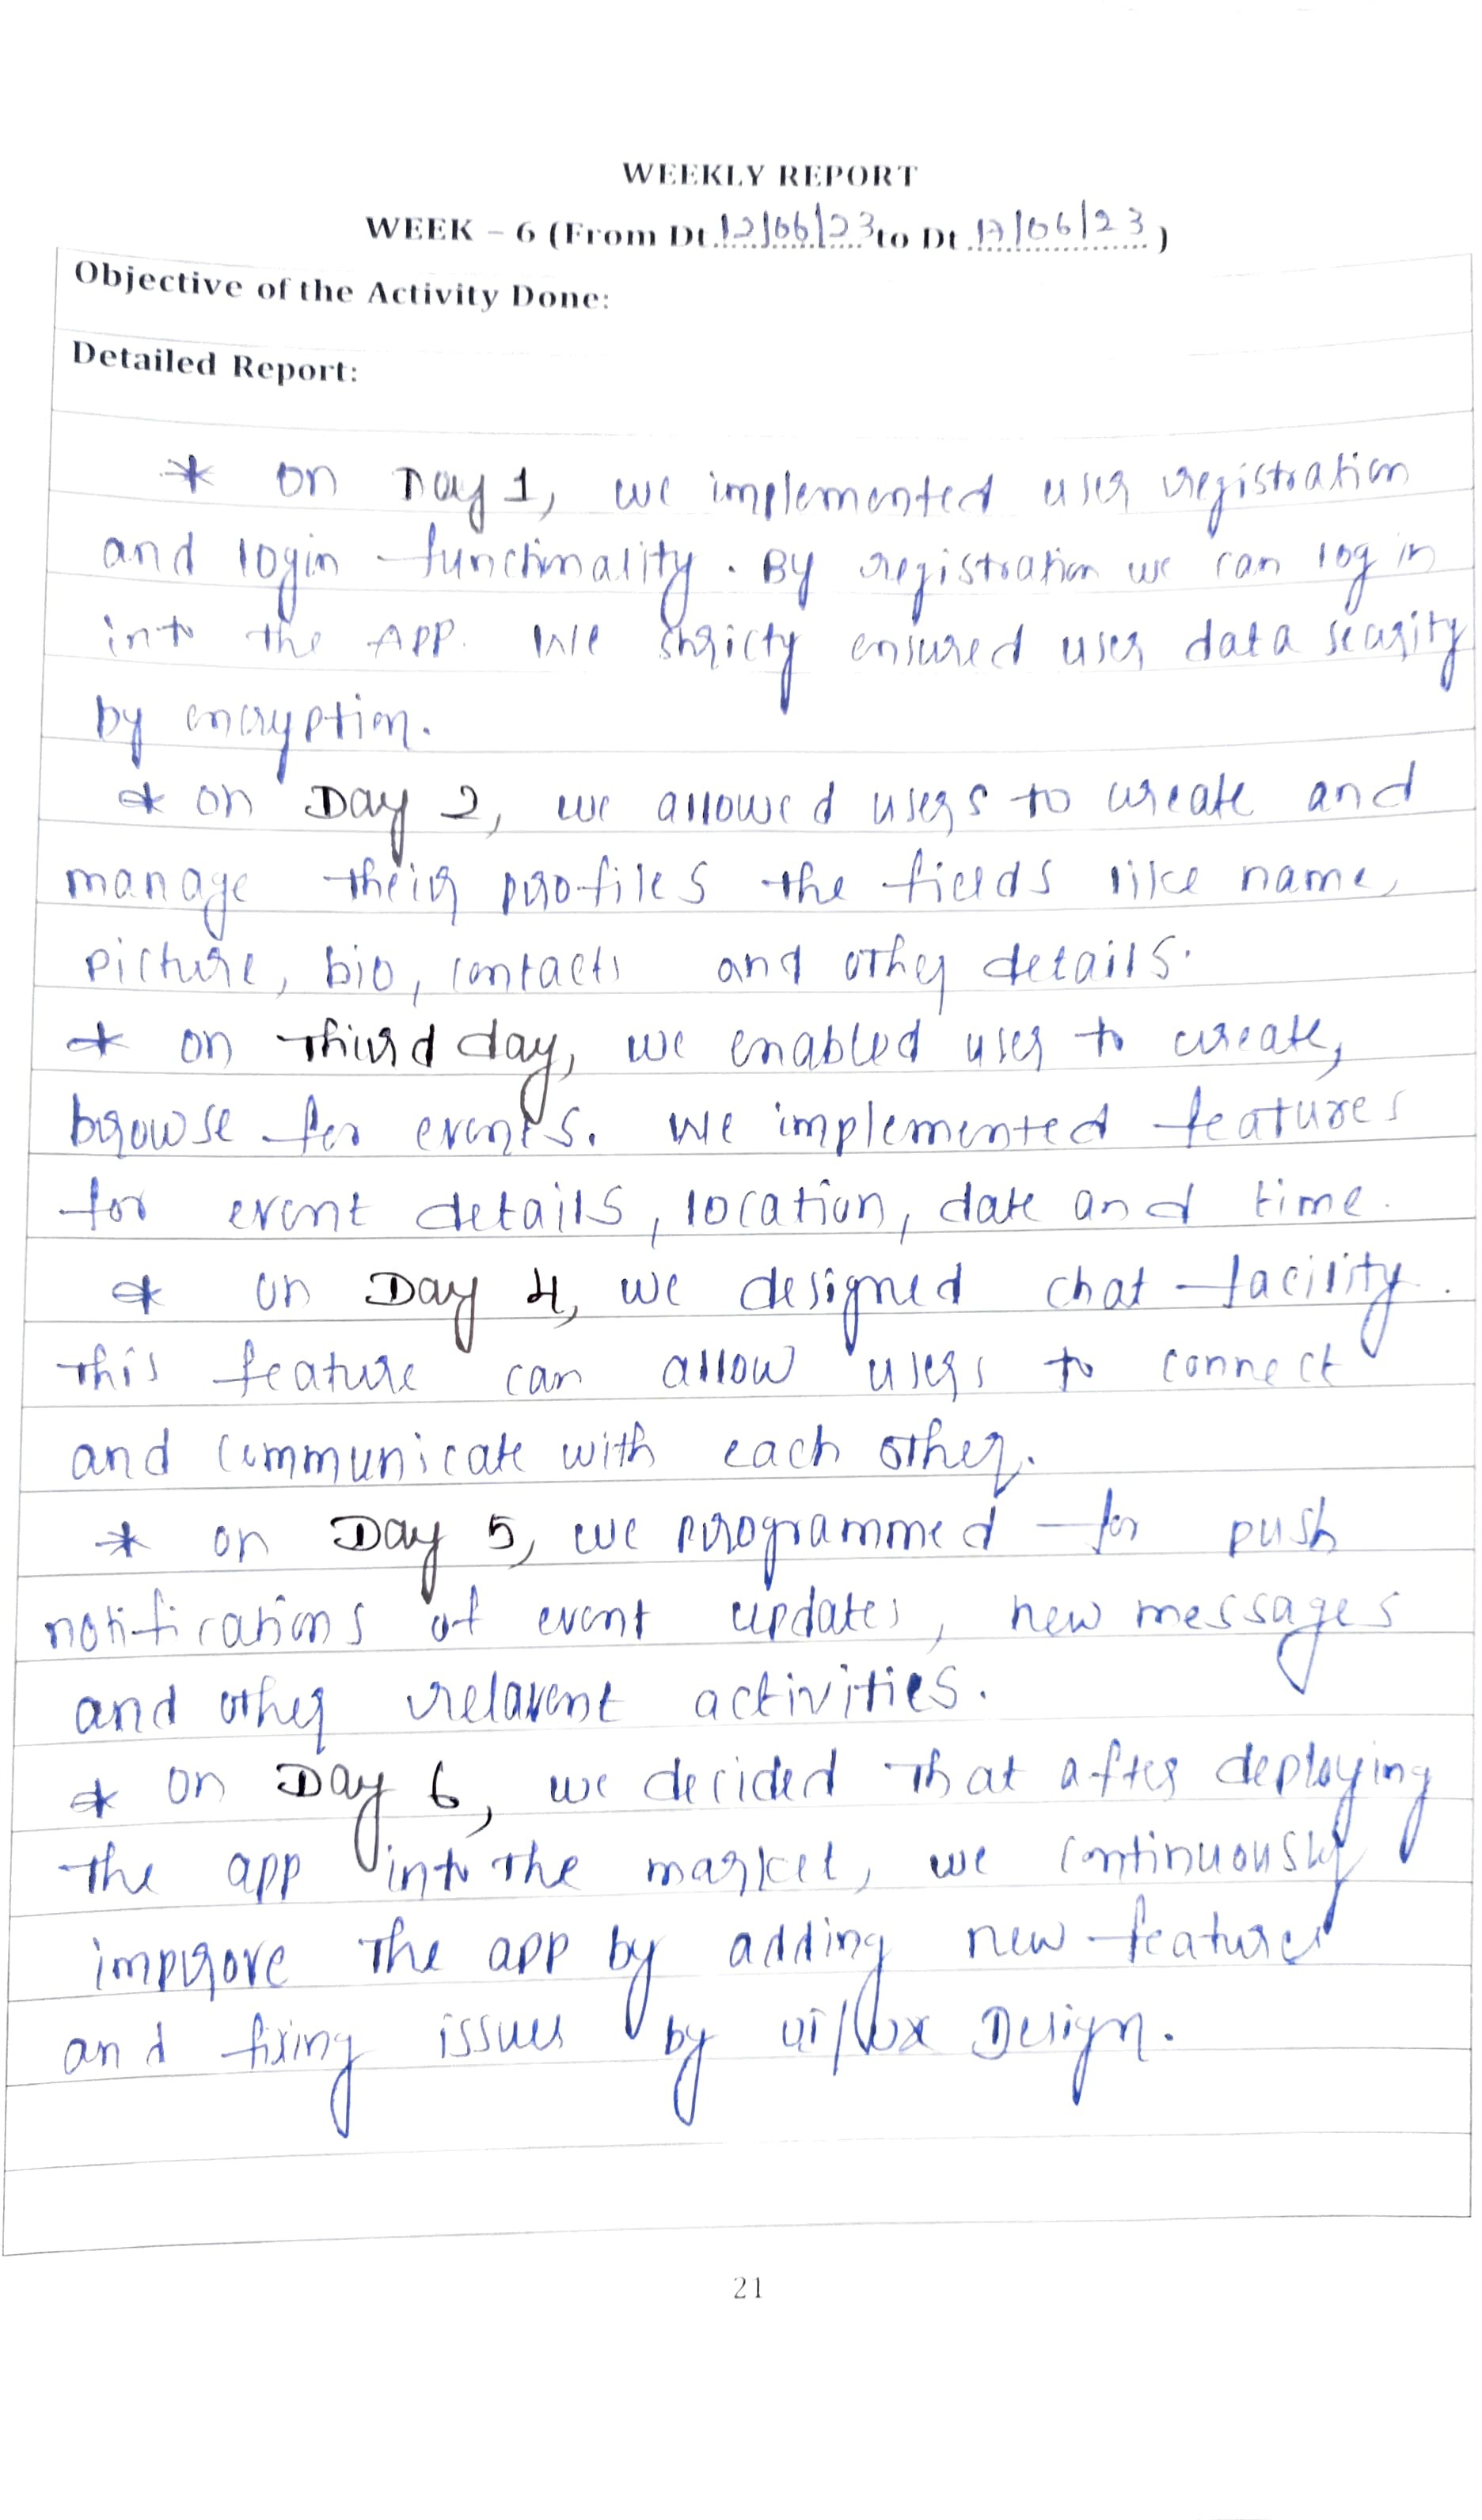 WEEKLY REPORT
WEEK – 6 (From Dt 12/06/23 to Dt 17/06/23)
Objective of the Activity Done:
Detailed Report:
* on Day 1, we implemented user registration
and login functinality. By registration we can log in
into the App. We stricty ensured user data secarity
by encryption.
* on Day 2, we allowed users to create and
manage their profiles the fields like name,
picture, bio, contacts and other details.
* on Third day, we enabled user to create,
browse for events. We implemented features
for event details, location, date and time.
* on Day 4, we designed chat facility.
This feature can allow users to connect
and communicate with each other.
* on Day 5, we programmed for push
notifications of event updates, new messages
and other relavent activities.
* on Day 6, we decided that after deploying
the app into the market, we continuously
improve the app by adding new features
and fixing issues by ui/ux Design.
21